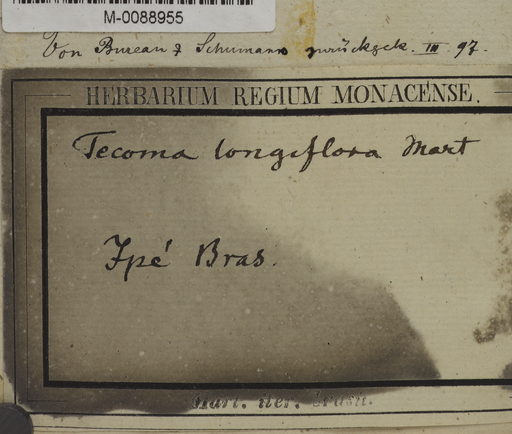 M-0088955
Von Bureau & Schumann zurückgek. III 97.
HERBARIUM REGIUM MONACENSE.
Tecoma longiflora Mart
Ipé Bras.
Mart. iter. Brasil.